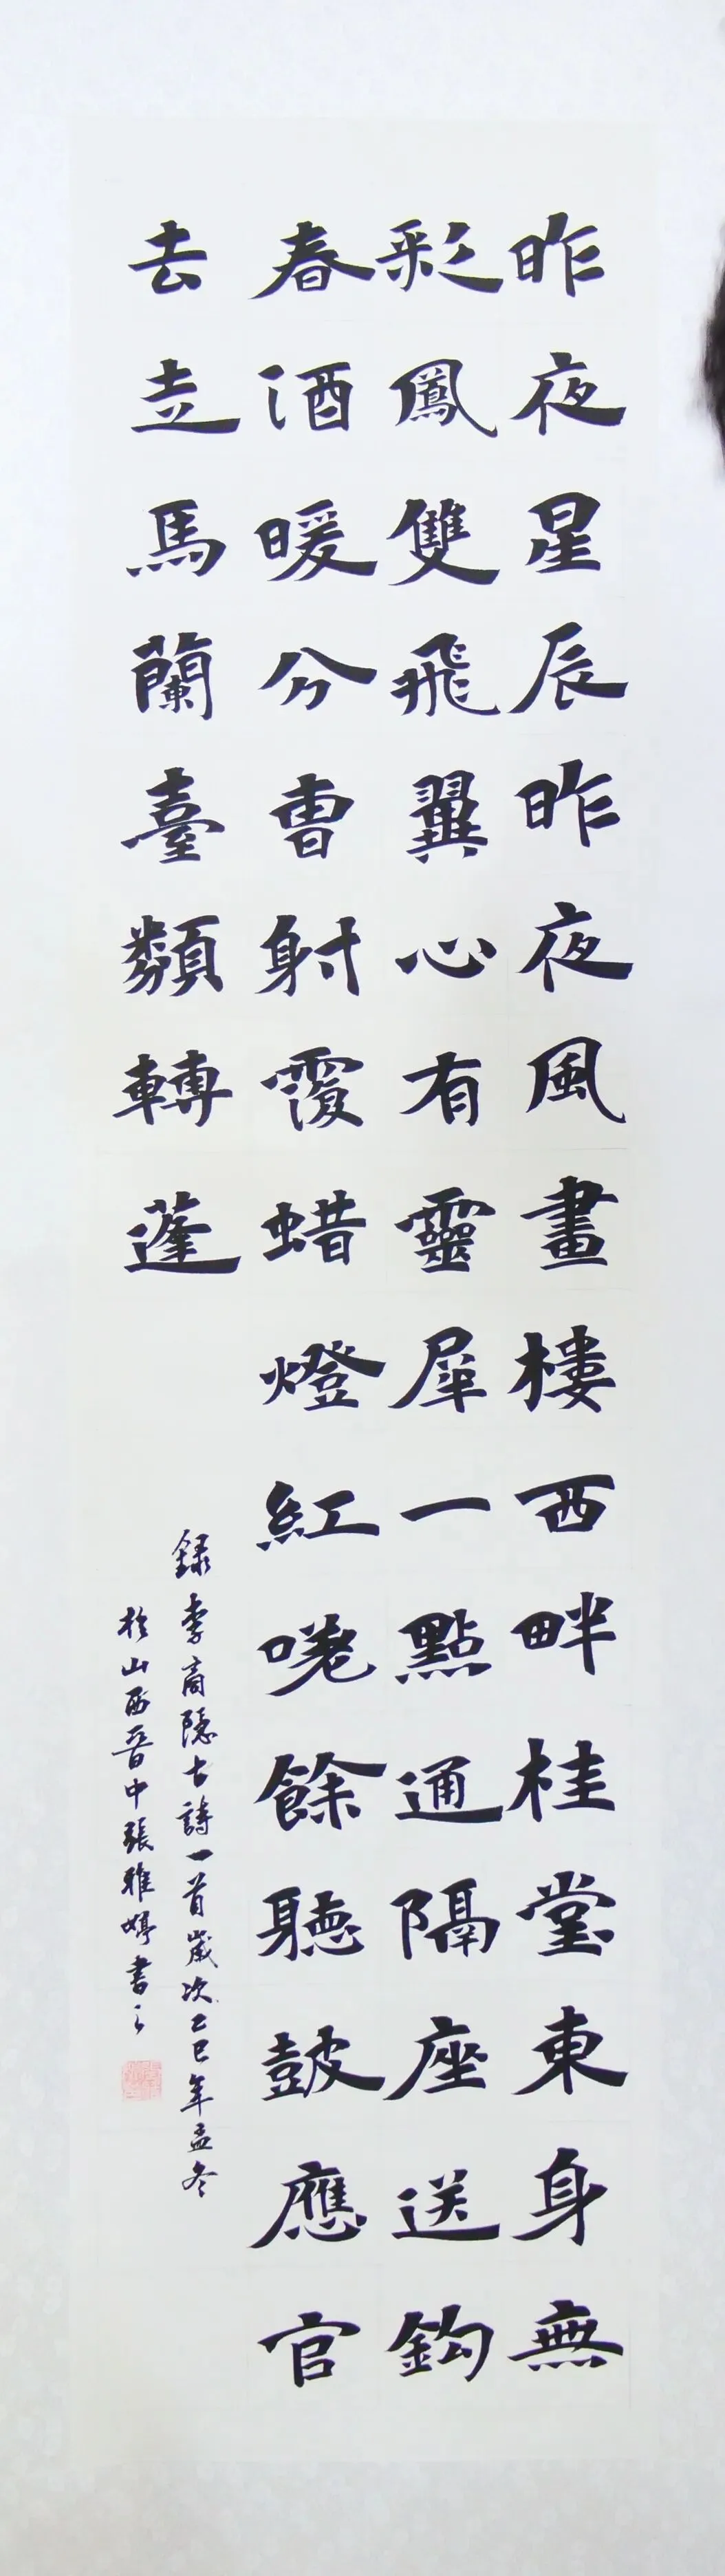 昨夜星辰昨夜風畫樓西畔桂堂東身無
彩鳳雙飛翼心有靈犀一點通隔座送鈎
春酒暖分曹射覆蜡燈紅嗟餘聽鼓應官
去走馬蘭臺類轉蓬
錄李商隱古詩一首歲次乙巳年孟冬
於山西晉中張雅婷書之